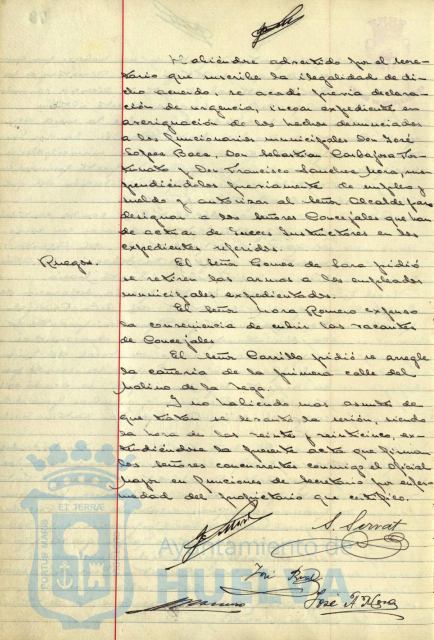 Habiéndose advertido por el Secre-
tario que suscribe la ilegalidad de di-
cho acuerdo, se acordó previa declara-
ción de urgencia, incoar expediente en
averiguación de los hechos denunciados
a los funcionarios municipales Don José
López Baca, Don Sebastian Carbajosa For-
tunato y Don Francisco Sanchez Mora, sus-
pendiéndoles previamente de empleo y
sueldo y autorizar al Señor Alcalde para
designar a los señores Concejales que han
de actuar de Jueces Instructores en los
expedientes referidos.
Ruegos.
El Señor Ponce de Lara pidió
se retiren las armas a los empleados
municipales expedientados.
El Señor Mora Romero expuso
la conveniencia de cubrir las vacantes
de Concejales
El Señor Carrillo pidió se arregle
la cañeria de la primera calle del
Molino de la Vega.
Y no habiendo mas asuntos de
que tratar se levantó la sesión, siendo
la hora de las veinte y veinticinco, ex-
tendiéndose la presente acta que firman
los señores concurrentes conmigo el Oficial
Mayor en funciones de Secretario por enfer-
medad del propietario que certifico.
S. Serrat
José
José A. Mora
PORTUS MARIS
ET TERRÆ
Ayuntamiento de
HUELVA